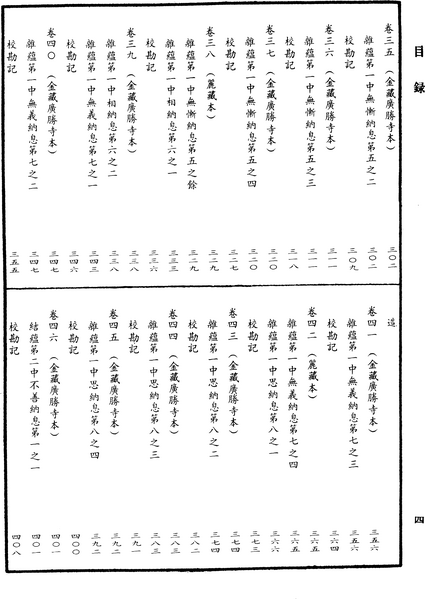 目錄
卷三五（金藏廣勝寺本） 三〇二
雜蘊第一中無慚納息第五之二 三〇二
校勘記 三〇九
卷三六（金藏廣勝寺本） 三一一
雜蘊第一中無慚納息第五之三 三一一
校勘記 三一八
卷三七（金藏廣勝寺本） 三二〇
雜蘊第一中無慚納息第五之四 三二〇
校勘記 三二七
卷三八（麗藏本） 三二九
雜蘊第一中無慚納息第五之餘 三二九
雜蘊第一中相納息第六之一 三三三
校勘記 三三六
卷三九（金藏廣勝寺本） 三三八
雜蘊第一中相納息第六之二 三三八
雜蘊第一中無義納息第七之一 三四三
校勘記 三四六
卷四〇（金藏廣勝寺本） 三四七
雜蘊第一中無義納息第七之二 三四七
校勘記 三五五
卷四一（金藏廣勝寺本） 三五六
雜蘊第一中無義納息第七之三 三五六
校勘記 三六四
卷四二（麗藏本） 三六五
雜蘊第一中無義納息第七之四 三六五
雜蘊第一中思納息第八之一 三六六
校勘記 三七三
卷四三（金藏廣勝寺本） 三七四
雜蘊第一中思納息第八之二 三七四
校勘記 三八二
卷四四（金藏廣勝寺本） 三八三
雜蘊第一中思納息第八之三 三八三
校勘記 三九一
卷四五（金藏廣勝寺本） 三九二
雜蘊第一中思納息第八之四 三九二
校勘記 四〇〇
卷四六（金藏廣勝寺本） 四〇一
結蘊第二中不善納息第一之一 四〇一
校勘記 四〇八
四